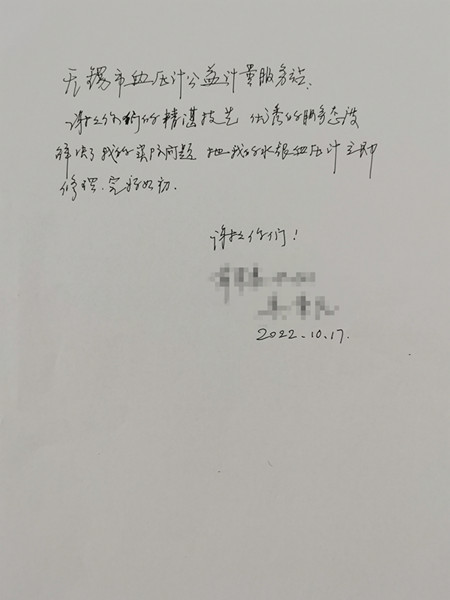 无锡市血压计公益计量服务站:
谢谢你们的精湛技艺 优秀的服务态度
解决了我的实际问题 把我的水银血压计立即
修理.完好如初.
谢谢你们!
2022.10.17.